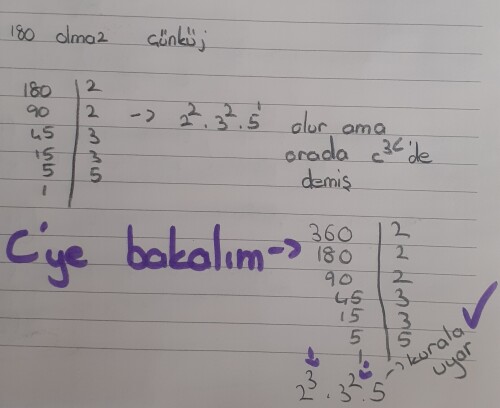 180 olmaz Çünküj
180 | 2
90 | 2 -> 2² . 3² . 5¹ olur ama
45 | 3 orada c³ᶜ'de
15 | 3 demiş
5 | 5
1
C'ye bakalım -> 360 | 2
180 | 2
90 | 2
45 | 3
15 | 3
5 | 5
1
2³ . 3² . 5 -> kurala uyar ✓